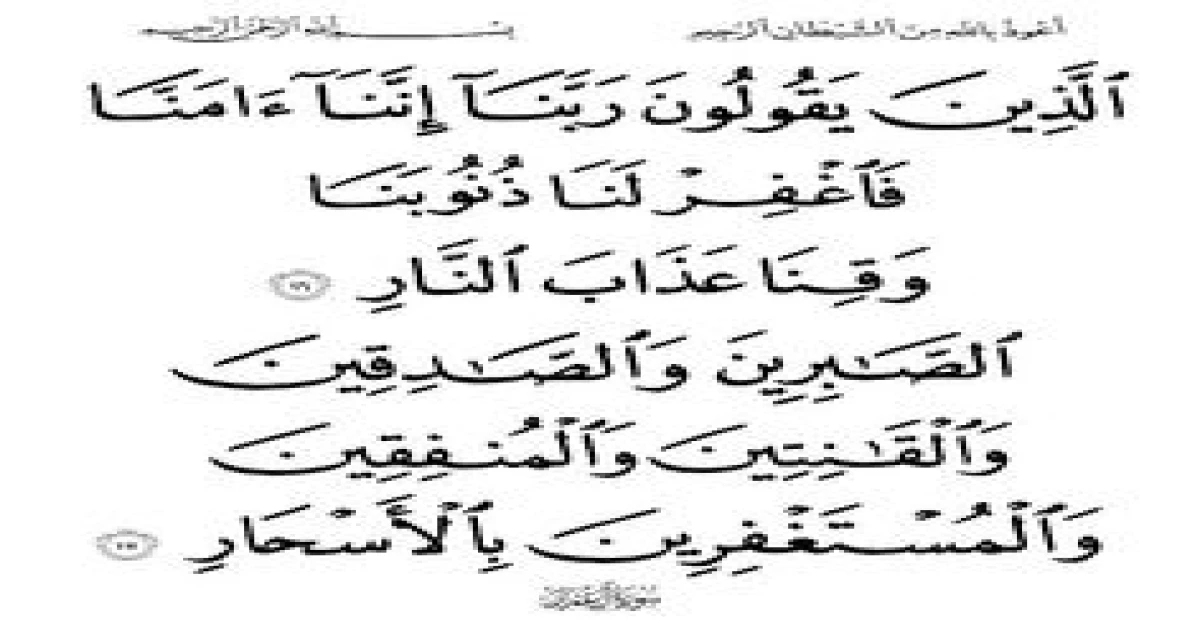 أعوذ بالله من الشيطان الرجيم بسم الله الرحمن الرحيم
ٱلَّذِينَ يَقُولُونَ رَبَّنَآ إِنَّنَآ ءَامَنَّا
فَٱغْفِرْ لَنَا ذُنُوبَنَا
وَقِنَا عَذَابَ ٱلنَّارِ ١٦
ٱلصَّـٰبِرِينَ وَٱلصَّـٰدِقِينَ
وَٱلْقَـٰنِتِينَ وَٱلْمُنفِقِينَ
وَٱلْمُسْتَغْفِرِينَ بِٱلْأَسْحَارِ ١٧
سورة آل عمران